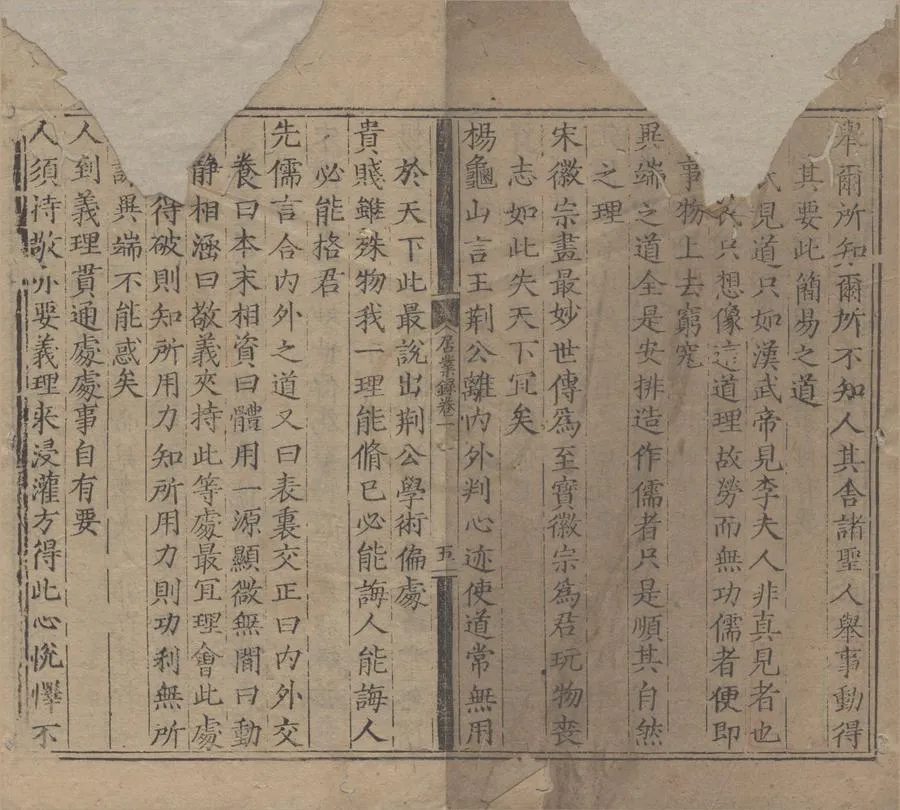 舉爾所知爾所不知人其舍諸聖人舉事動得
其要此簡易之道
氏見道只如漢武帝見李夫人非真見者也
只想像這道理故勞而無功儒者便即
事物上去窮究
異端之道全是安排造作儒者只是順其自然
之理
宋徽宗畫最妙世傳爲至寶徽宗爲君玩物喪
志如此失天下宜矣
楊龜山言王荆公離內外判心迹使道常無用
居業錄卷一
五
於天下此最說出荆公學術偏處
貴賤雖殊物我一理能脩已必能誨人能誨人
必能格君
先儒言合內外之道又曰表裏交正曰內外交
養曰本末相資曰體用一源顯微無間曰動
静相涵曰敬義夾持此等處最宜理會此處
得破則知所用力知所用力則功利無所
異端不能惑矣
人到義理貫通處處事自有要
人須持敬亦要義理來浸灌方得此心悅懌不